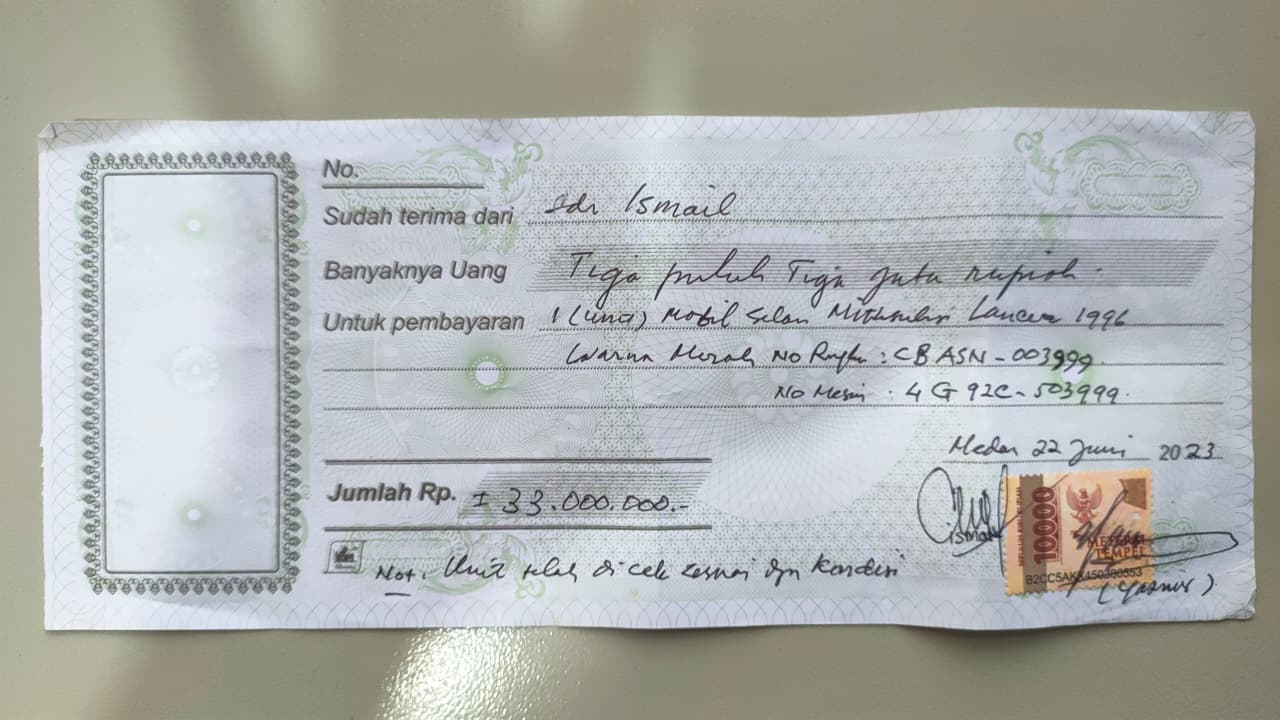 No.
Sudah terima dari Sdr Ismail
Banyaknya Uang Tiga puluh Tiga juta rupiah.
Untuk pembayaran 1 (unit) Mobil Sedan Mitsubishi Lancer 1996
Warna Merah No Rangka : CB ASN-003999.
No Mesin : 4 G 92C-503999.
Medan 22 Juni 2023
Jumlah Rp. 33.000.000.-
ismail
10000
METERAI
TEMPEL
Not. Unit telah di cek sesuai dgn kondisi
(Yasnir)